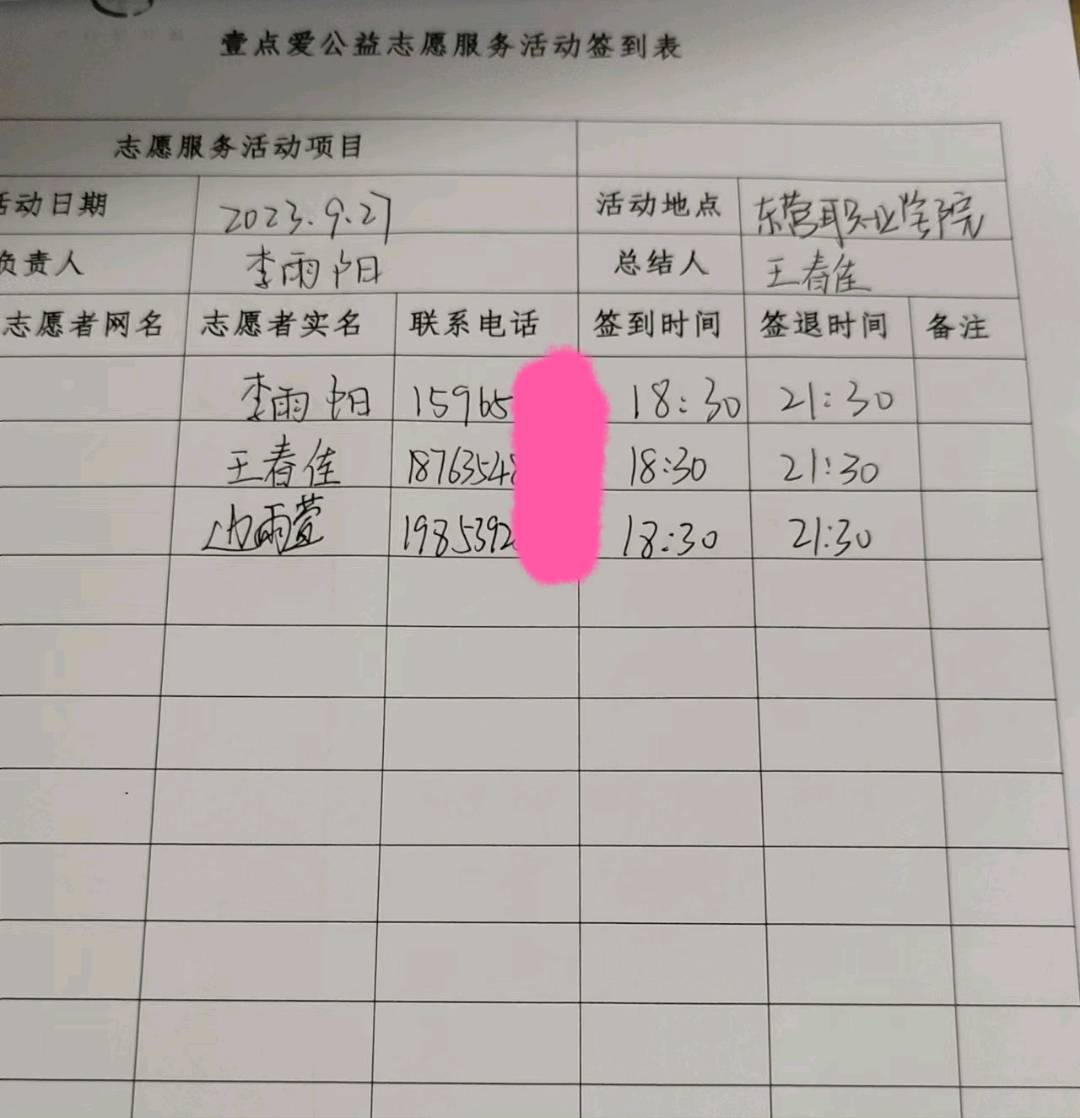 壹点爱公益志愿服务活动签到表
志愿服务活动项目
活动日期 2023.9.27 活动地点 东营职业学院
负责人 李雨阳 总结人 王春佳
志愿者网名 志愿者实名 联系电话 签到时间 签退时间 备注
李雨阳 15965 18:30 21:30
王春佳 1876354 18:30 21:30
边雨萱 1985392 18:30 21:30